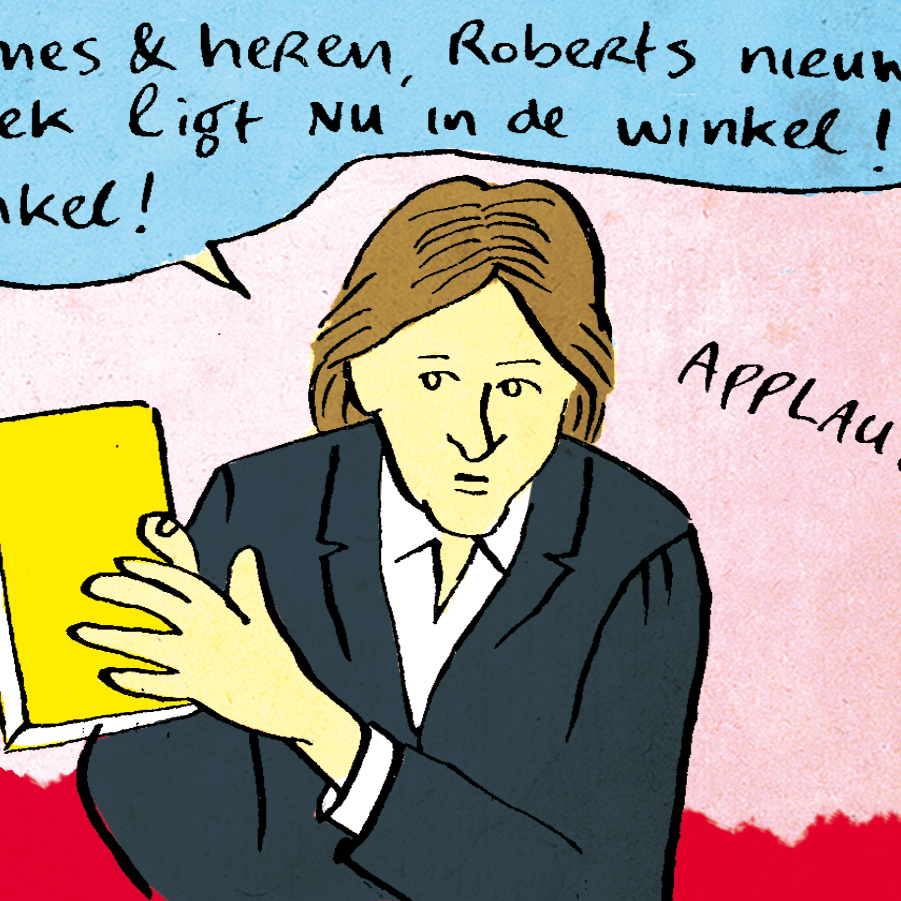 mes & heren, Roberts nieuw
ek ligt NU in de winkel!
nkel!
APPLAU